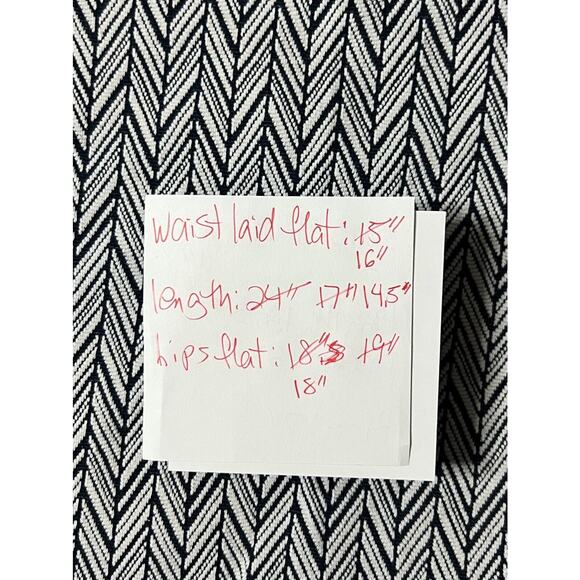 waist laid flat: 15"
16"
length: 24" 17" 14.5"
hips flat: 18" 19"
18"